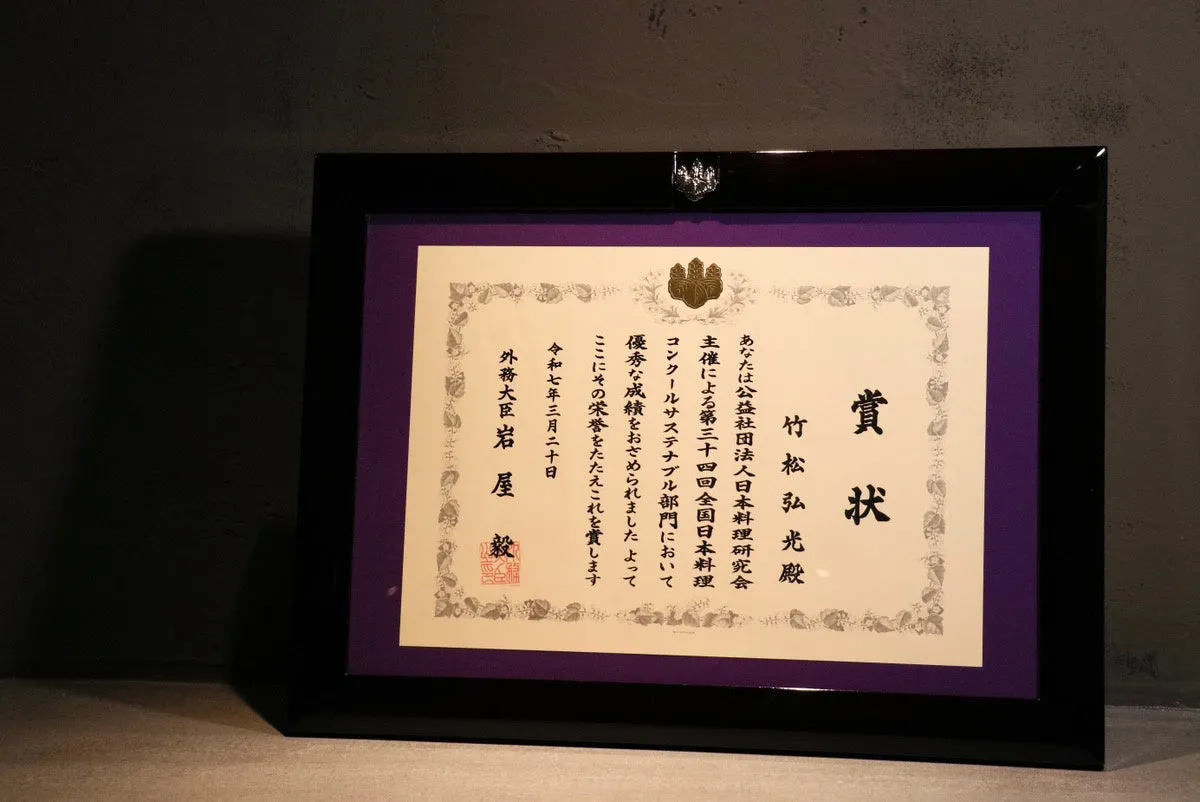 賞状
竹松弘光殿
あなたは公益社団法人日本料理研究会
主催による第三十四回全国日本料理
コンクールサステナブル部門において
優秀な成績をおさめられました よって
ここにその栄誉をたたえこれを賞します
令和七年三月二十日
外務大臣 岩屋毅